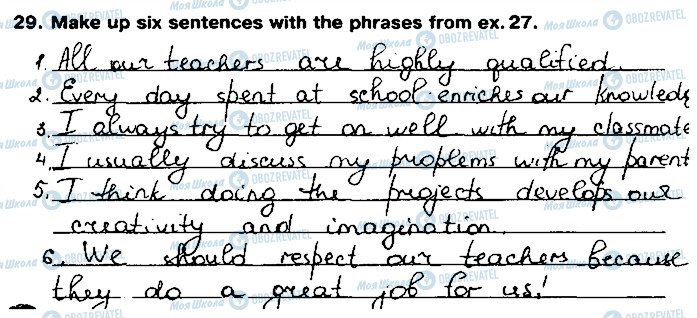 29. Make up six sentences with the phrases from ex. 27.
1. All our teachers are highly qualified.
2. Every day spent at school enriches our knowledg
3. I always try to get on well with my classmate
4. I usually discuss my problems with my parent
5. I think doing the projects develops our
creativity and imagination.
6. We should respect our teachers because
they do a great job for us!